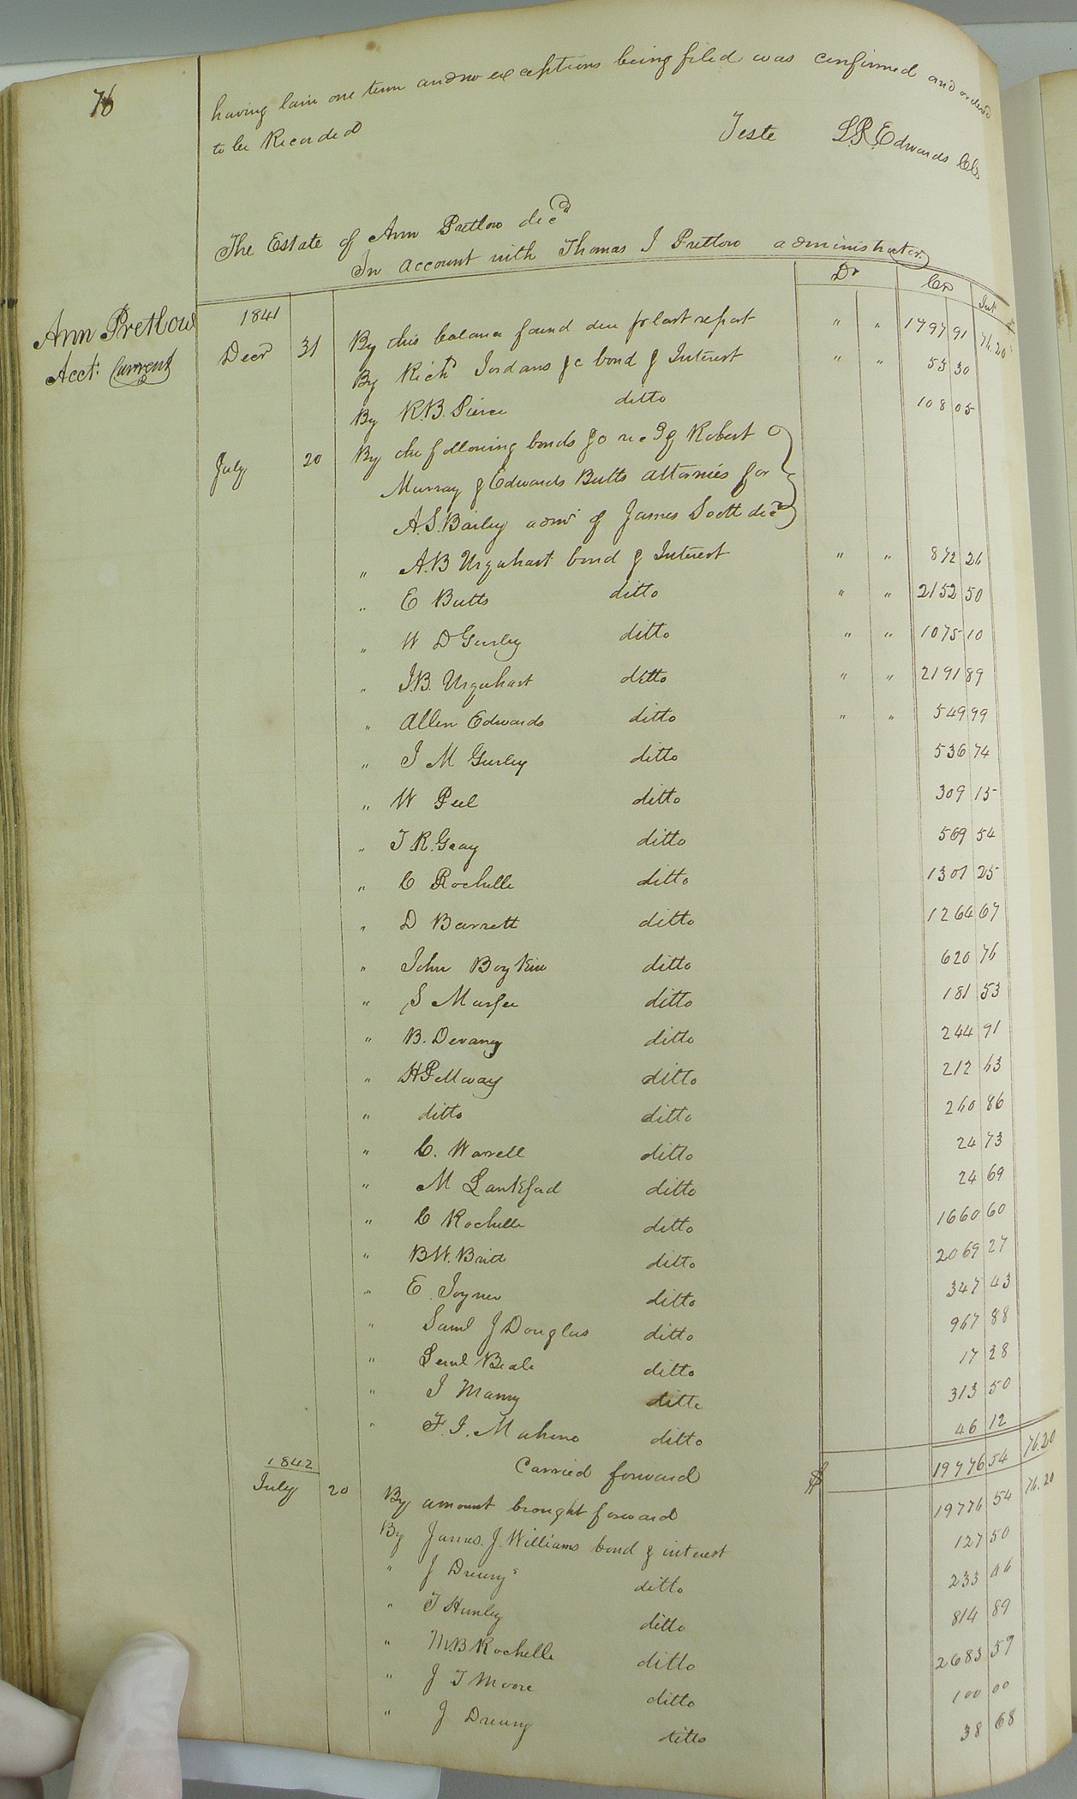 76
having lain one term and no exceptions being filed was confirmed and ordered
to be Recorded
Teste L.R. Edwards Clk
The Estate of Ann Pretlow decd
In account with Thomas J Pretlow administrator
Dr Cr Int
Ann Pretlow
Acct: Current
1841
Decr 31 By this balance found due pr last report " " 1797 91 76.20
By Richd Jordans &c bond & Interest " " 55 30
By R.B. Pierce ditto 108 05
July 20 By the following bonds &c recd of Robert
Murray & Edwards Butts attornies for
A.S. Bailey admr of James Scott decd
" A.B Urquhart bond & Interest " " 872 26
" E Butts ditto " " 2152 50
" W D Gurley ditto " " 1075 10
" J.B. Urquhart ditto " " 2191 89
" Allen Edwards ditto " " 549 99
" J M Gurley ditto 536 74
" W Peel ditto 309 15
" T.R. Gray ditto 569 54
" C Rochelle ditto 1301 25
" D Barrett ditto 1264 67
" John Boykin ditto 620 76
" S Murfee ditto 181 53
" B. Devany ditto 244 91
" H Pettway ditto 212 63
" ditto ditto 260 86
" C. Worrell ditto 24 73
" M Lankford ditto 24 69
" C Rochelle ditto 1660 60
" B.W. Britt ditto 2069 27
" E. Joyner ditto 347 43
" Saml J Douglas ditto 967 88
" Leml Beale ditto 17 28
" J Manry ditto 313 50
" F. J. Mahone ditto 46 12
Carried forward $ 19776 54 76.20
1842
July 20 By amount brought forward 19776 54 76.20
By James. J. Williams bond & interest 127 50
" J Drewry's ditto 233 46
" T Hunley ditto 814 89
" M.B Rochelle ditto 2683 57
" J T Moore ditto 100 00
" J Drewry ditto 38 68